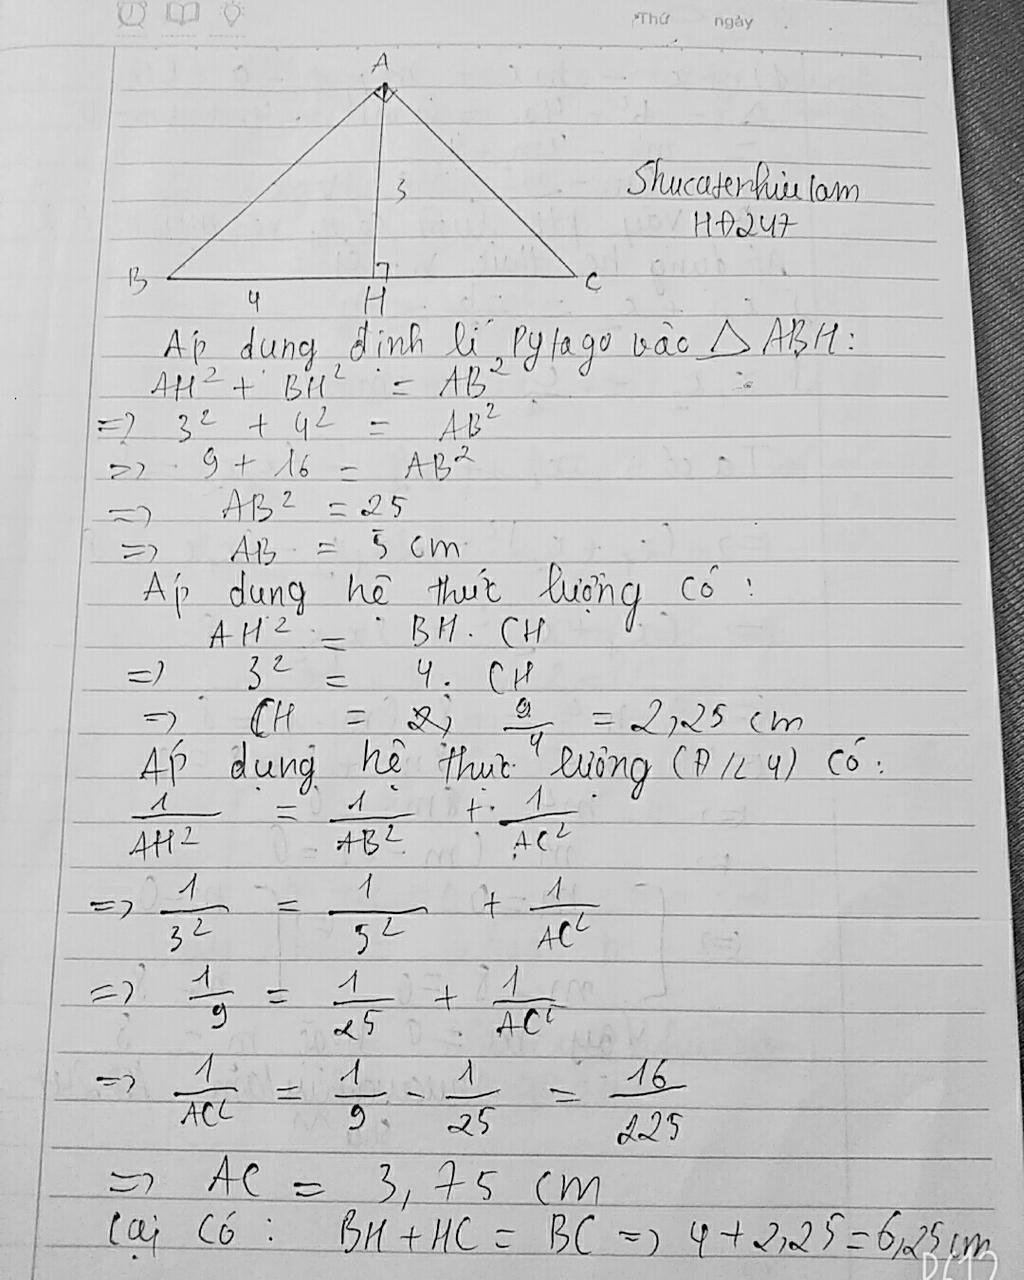 Thứ ngày
A
3
Shucaterhiulam
HĐ247
B 4 H C
Áp dụng định lí Pytago vào △ ABH:
AH² + BH² = AB²
=> 3² + 4² = AB²
=> 9 + 16 = AB²
=> AB² = 25
=> AB = 5 cm
Áp dụng hệ thức lượng có:
AH² = BH. CH
=> 3² = 4. CH
=> CH = 9/4 = 2,25 cm
Áp dụng hệ thức lượng (Đ/L 4) có:
1/AH² = 1/AB² + 1/AC²
=> 1/3² = 1/5² + 1/AC²
=> 1/9 = 1/25 + 1/AC²
=> 1/AC² = 1/9 - 1/25 = 16/225
=> AC = 3,75 cm
Lại có: BH + HC = BC => 4 + 2,25 = 6,25 cm